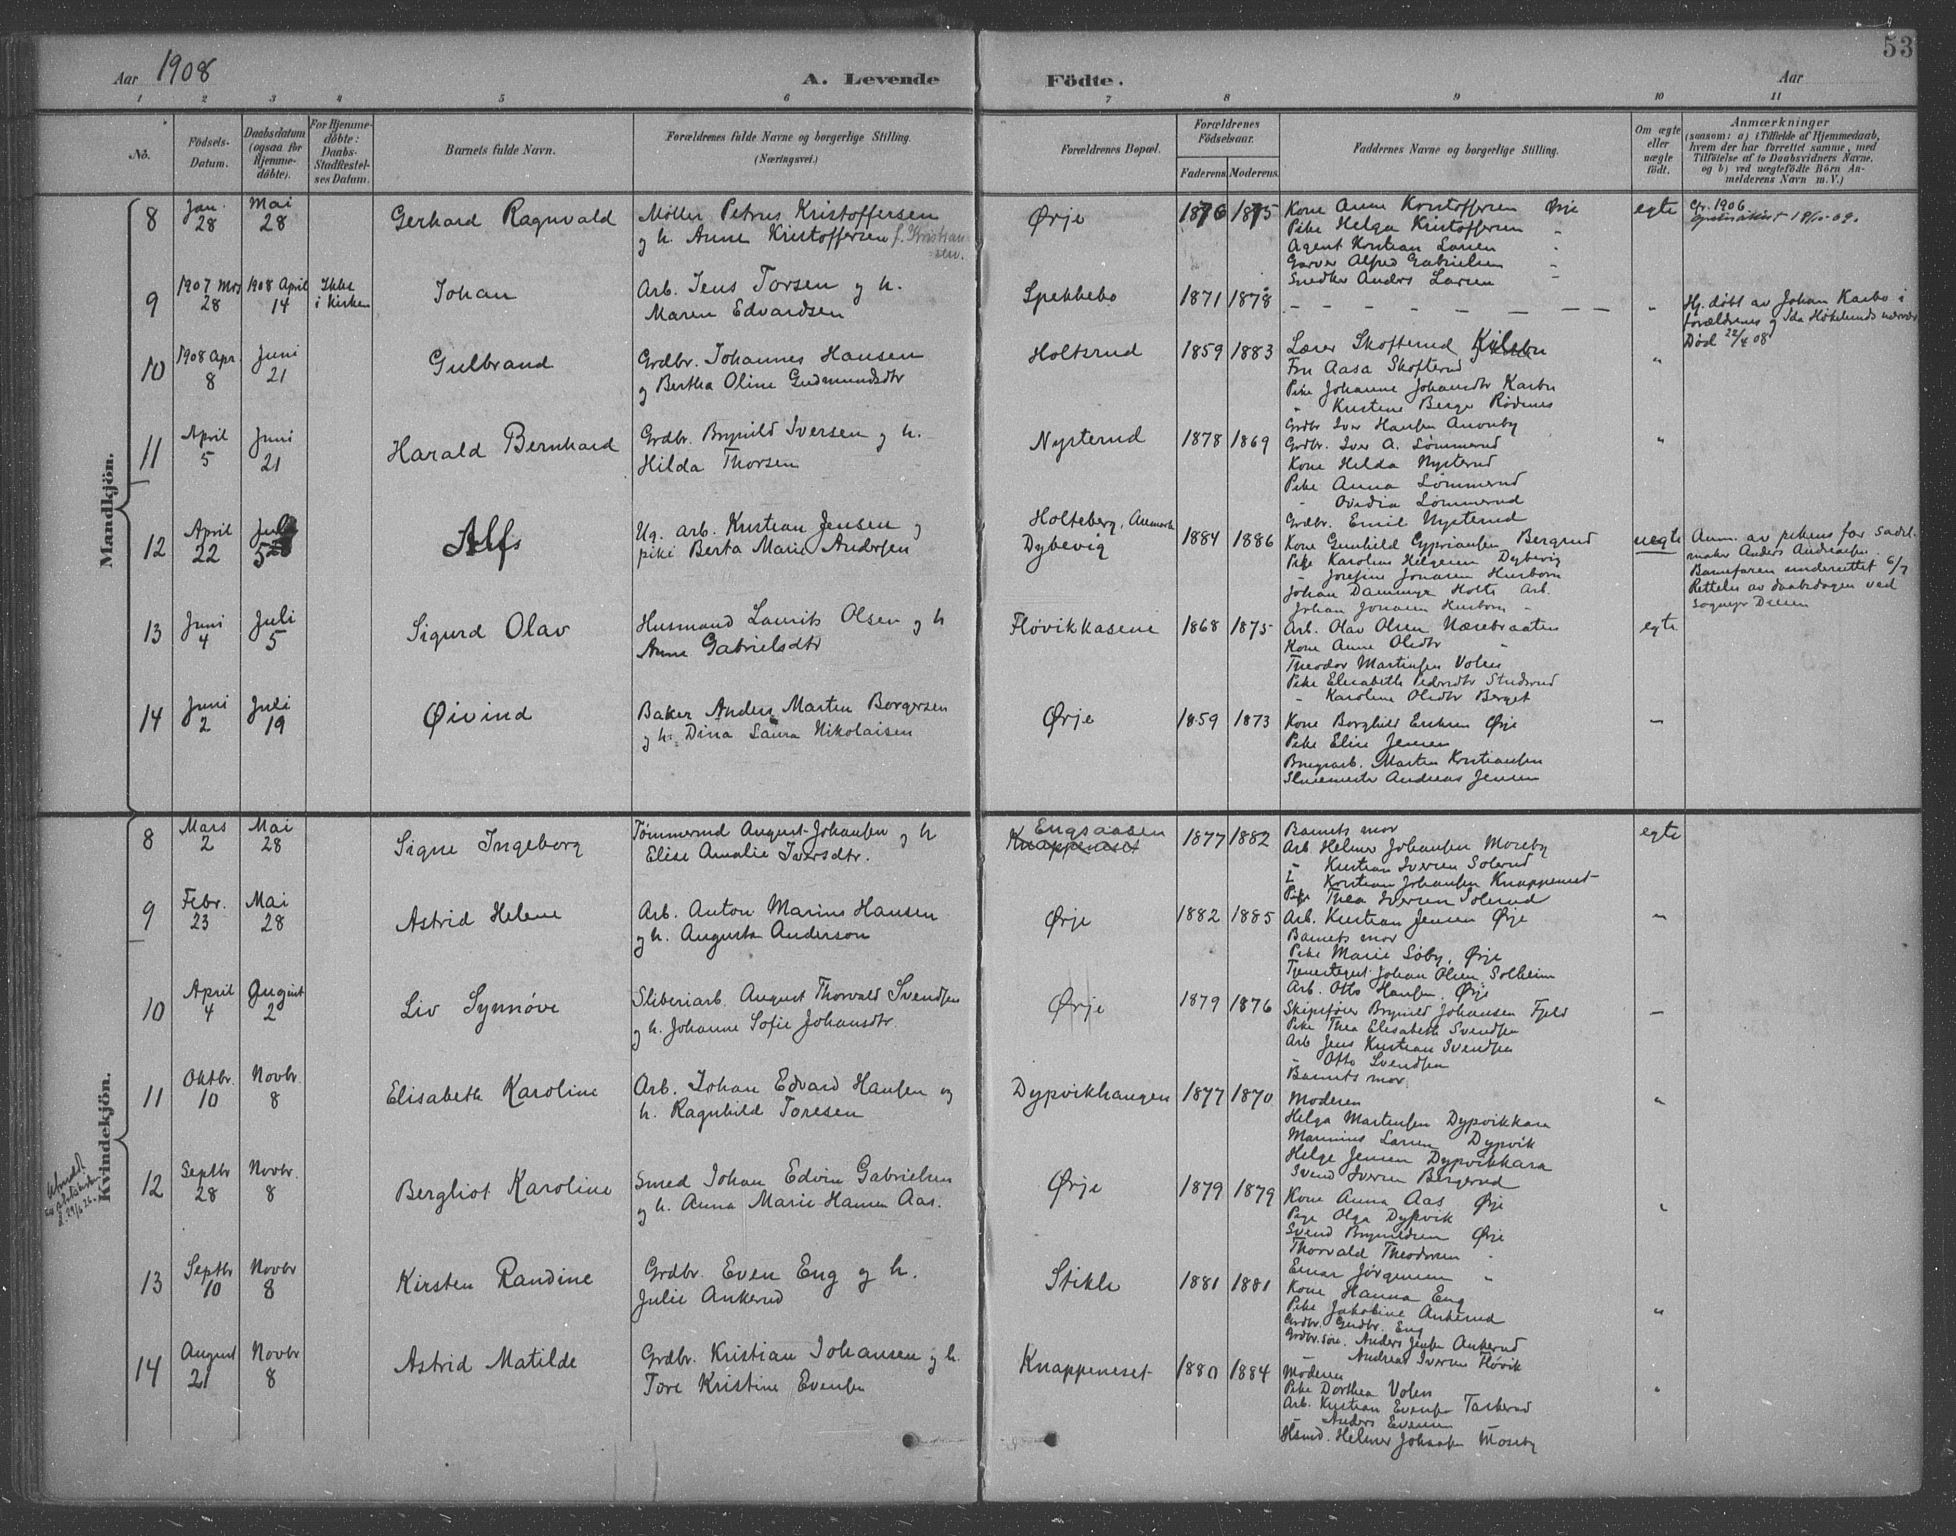 53
Aar 1908
A. Levende
Födte.
Aar
1 2 3 4 5 6 7 8 9 10 11
No.
Födsels-Datum.
Daabsdatum (ogsaa for Hjemme-döbte).
For Hjemme-döbte: Daabs-Stadfestel-ses Datum.
Barnets fulde Navn.
Forældrenes fulde Navne og borgerlige Stilling.
(Næringsvei.)
Forældrenes Bopæl.
Forældrenes Födselsaar.
Faderens. Moderens.
Faddernes Navne og borgerlige Stilling.
Om ægte eller uægte födt.
Anmærkninger
(saasom: a) i Tilfælde af Hjemmedaab,
hvem der har forrettet samme, med
Tilföielse af to Daabsvidners Navne,
og b) ved uægtefödte Börn An-
melderens Navn m. V.)
Mandkjön.
8 Jan. 28 Mai 28 Gerhard Ragnvald
Møller Petrus Kristoffersen
og h. Anne Kristoffersen f. Kristian
sen.
Ørje 1876 1875
Kone Anne Kristoffersen Ørje
Pike Helga Kristoffersen "
Agent Kristian Larsen "
Garver Alfred Gabrielsen "
Snedker Anders Larsen
egte
cfr. 1906
9 1907 Nov 28 1908 April 14 Ikke i kirken Johan
Arb. Jens Torsen og h.
Maren Edvardsen
Spekkebo 1871 1878
"
Hj. døbt av Johan Karbo i
forældrenes og Ida Høkelunds nærvær
Død 22/4 08
10 1908 Apr. 8 Juni 21 Gulbrand
Grdbr. Johannes Hansen
og Bertha Oline Gudmundsdtr
Holtsrud 1859 1883
Lærer Skofterud
Fru Aasa Skofterud
Pike Johanne Johansdtr Karbu
" Kristine Berger Rødenes
Grdbr Iver Hansen
"
11 April 5 Juni 21 Harald Bernhard
Grdbr. Brynild Iversen og h.
Hilda Thorsen
Nysterud 1878 1869
Grdbr. Iver A. Lømmerud
Kone Hilda Nysterud
Pike Anna Lømmerud
- Ovidia Lømmerud
Grdbr. Emil Nysterud
"
12 April 22 Juli 5 Alf
Ug. arb. Kristian Jensen og
pike Berta Marie Andersen
Holteberg, Anmark
Dybevig 1884 1886
Kone Gunhild Cypriansen Bergerud
Pike Karoline Helgesen Dybevig
" Josefine Jonasen Husborn
Johan Holte Arb.
Johan Jonasen Husborn "
uegte
Anm. av pikens far Sadel-
maker Anders Andreasen.
Barnefaren underrettet 6/7
Rettelse av daabsdagen ved
13 Juni 4 Juli 5 Sigurd Olav
Husmand Laurits Olsen og h
Anne Gabrielsdtr
Fløvikkasene 1868 1875
Arb. Olav Olsen Næsebraaten
Kone Anne Olsdtr "
Theodor Martinsen Volen
Pike Elisabeth Pedersdtr Studsrud
- Karoline Olsdtr Berget
egte
14 Juni 2 Juli 19 Øivind
Baker Anders Martin Borgersen
og h. Dina Laura Nikolaisen
Ørje 1859 1873
Kone Borghild Eriksen Ørje
Pike Elise Jensen
Brugsarb. Marten Kristiansen
Slusemester Andreas Jensen
"
Kvindekjön.
8 Mars 2 Mai 28 Signe Ingeborg
Tømmermd August Johansen og h
Elise Amalie Iversdtr.
Engsaasen
Knappeneset 1877 1882
Barnets mor
Arb. Helmer Johansen Moseby
" Kristian Iversen Solerud
" Kristian Johansen Knappeneset
Pike Thea Iversen Solerud
egte
9 Febr. 23 Mai 28 Astrid Helene
Arb. Anton Marius Hansen
og h. Augusta Anderson
Ørje 1882 1885
Arb. Kristian Jensen Ørje
Barnets mor
Pike Marie Søby, Ørje
Tjenestegut Johan Olsen Solheim
Arb. Otto Hansen, Ørje
"
10 April 4 August 2 Liv Synnøve
Sliberiarb. August Thorvald Svendsen
og h. Johanne Sofie Johansdtr
Ørje 1879 1876
Skipsfører Brynild Johansen Fjeld
Pike Thea Elisabeth Svendsen
Arb Jens Kristian Svendsen
- Otto Svendsen
Barnets mor.
"
11 Oktbr. 10 Novbr. 8 Elisabeth Karoline
Arb. Johan Edvard Hansen og
h. Ragnhild Toresen
Dypvikhaugen 1877 1870
Moderen
Helga Martinsen Dypvikkasa
Marinius Larsen Dypvik
Helge Jensen Dypvikkasa
Svend Iversen Bergerud
"
12 Septbr 28 Novbr. 8 Bergliot Karoline
Smed Johan Edvin Gabrielsen
og h. Anna Marie Hansen Aas.
Ørje 1879 1879
Kone Anna Aas Ørje
Pige Olga Dypvik
Svend Brynildsen Ørje
Thorvald Theodorsen "
Einar Jørgensen "
"
13 Septbr 10 Novbr 8 Kirsten Randine
Grdbr. Even Eng og h.
Julie Ankerud
Stikle 1881 1881
Kone Hanna Eng
Pike Jakobine Ankerud
Grdbr. Gudbr. Eng
Grdbr.søn. Anders Jensen Ankerud
- Andreas Iversen Fløvik
"
14 August 21 Novbr 8 Astrid Matilde
Grdbr. Kristian Johansen og h.
Tore Kristine Evensen
Knappeneset 1880 1884
Moderen
Pike Dorthea Volen
Arb. Kristian Evensen Taskerud
- Anders Evensen
Husmd. Helmer Johansen Moseby
"